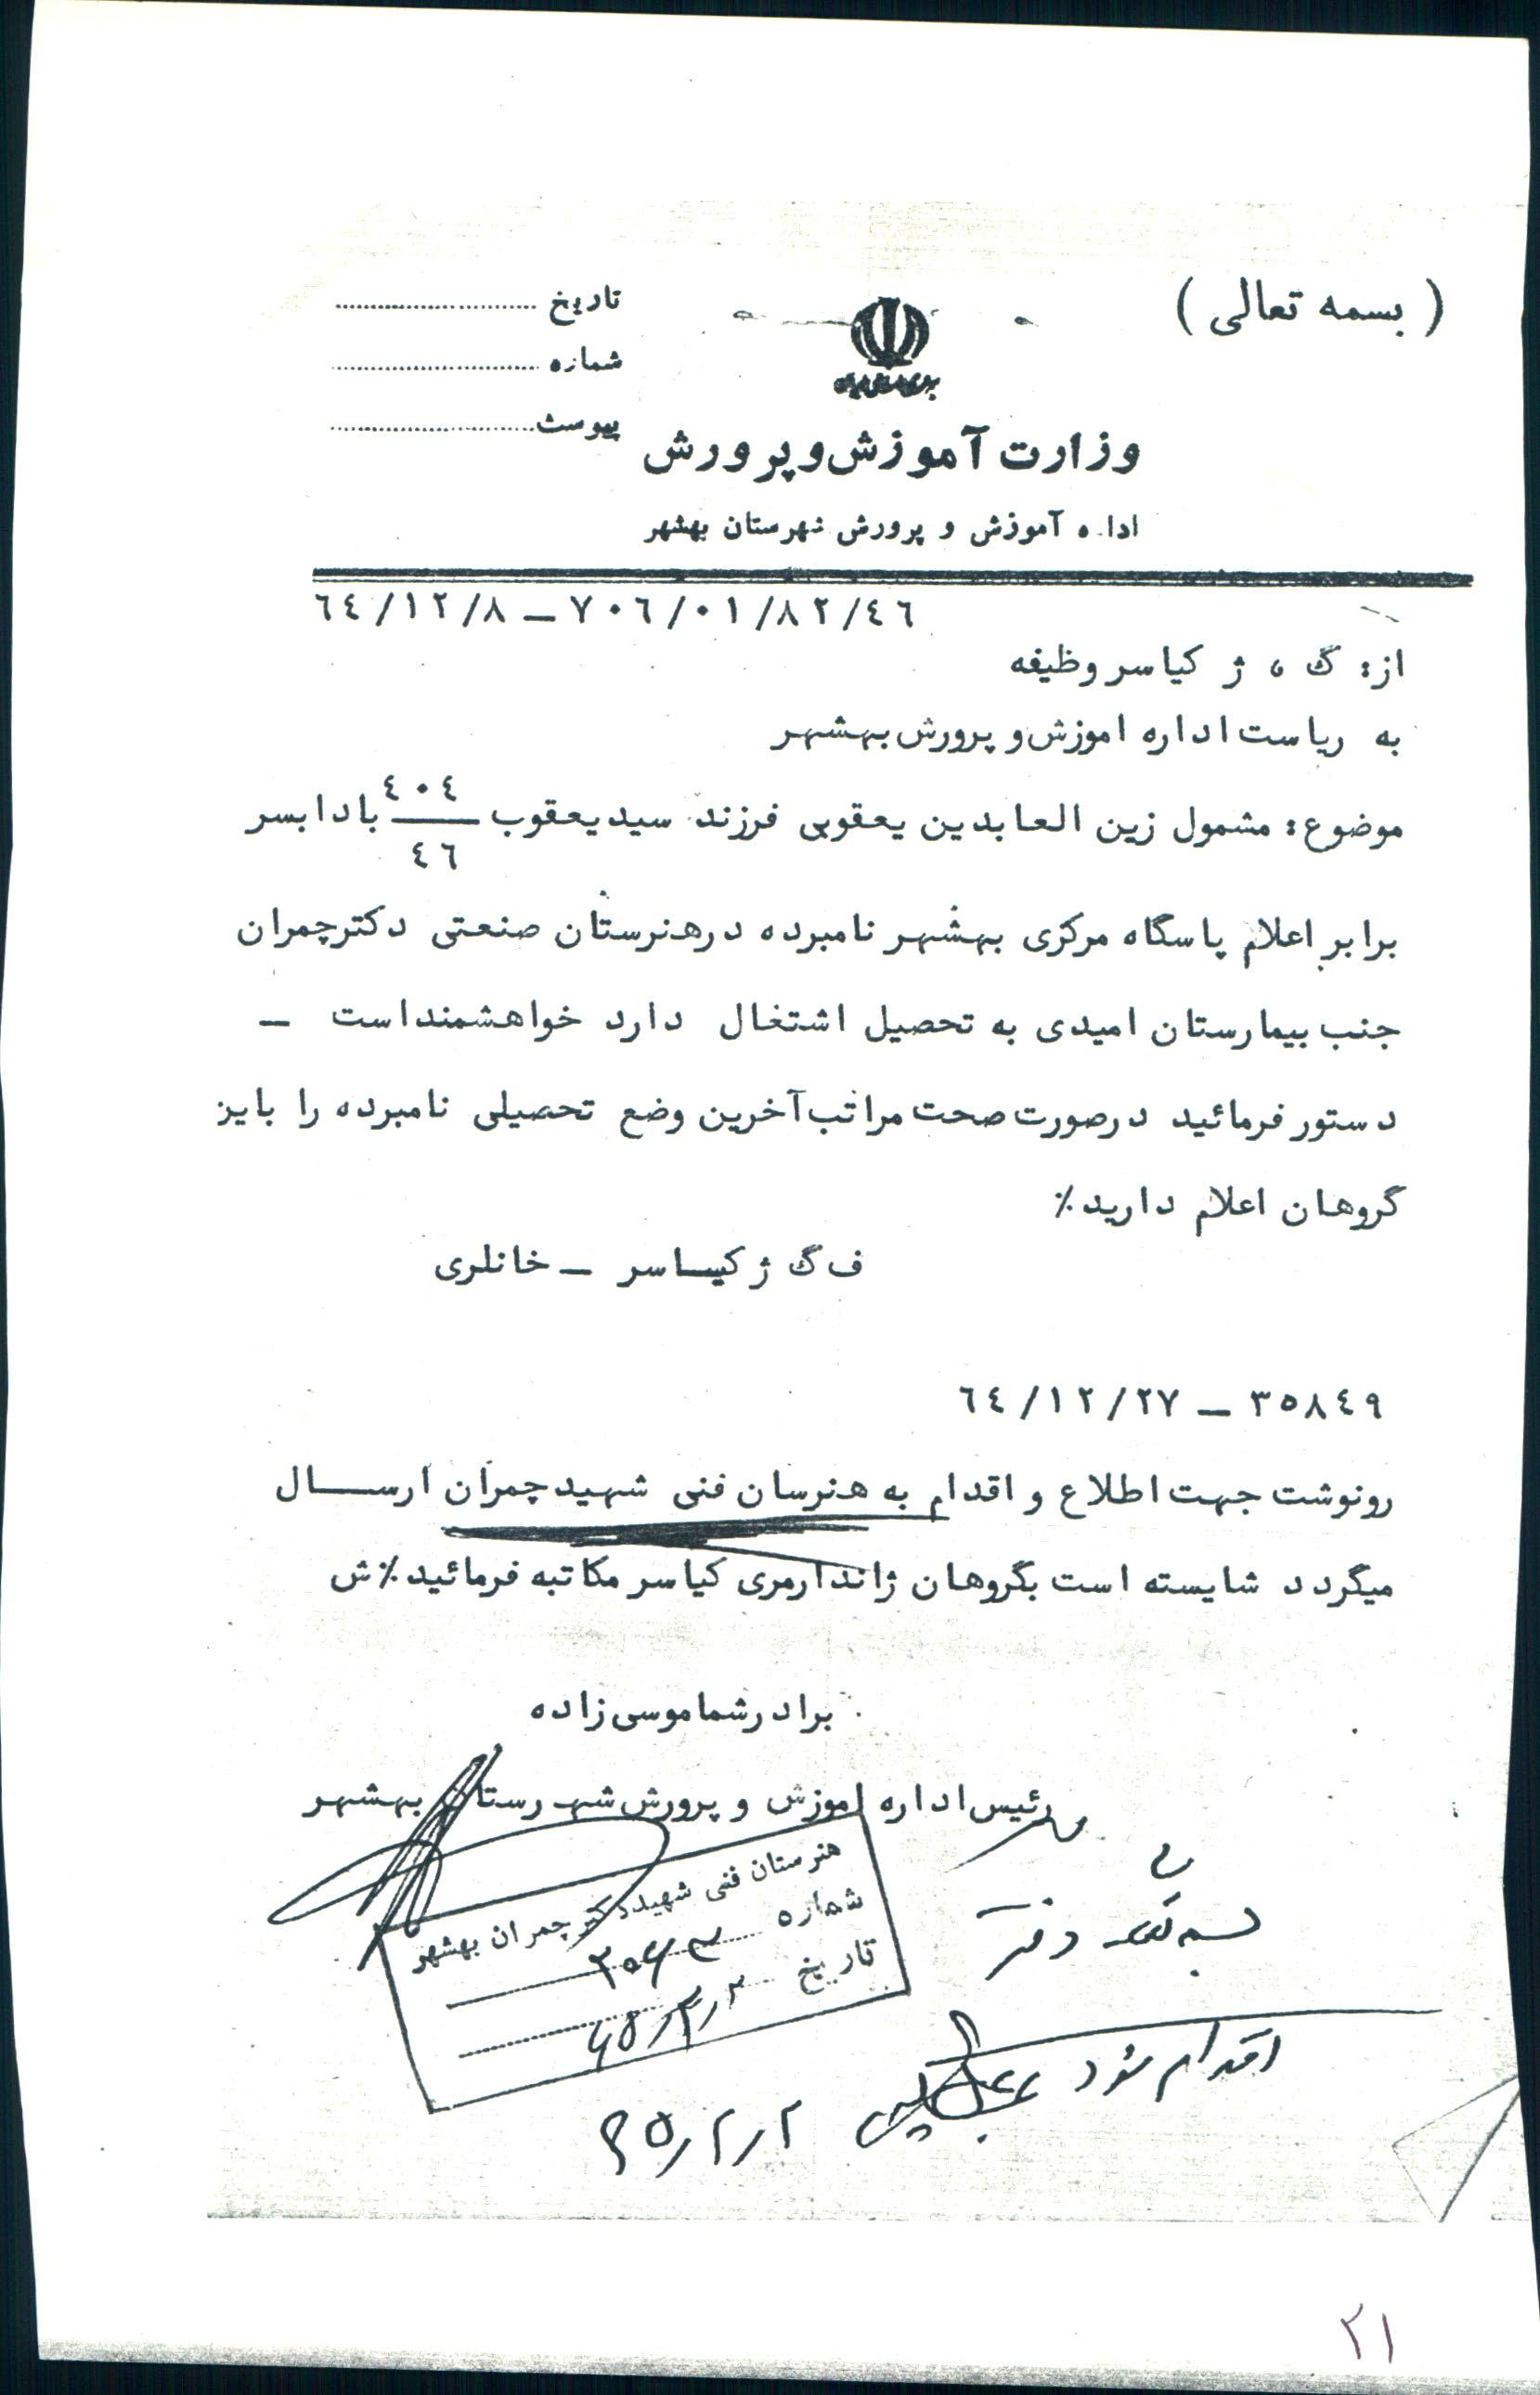 ( بسمه تعالی )
تاریخ
شماره
پیوست
وزارت آموزش و پرورش
اداره آموزش و پرورش شهرستان بهشهر
٦٤/١٢/٨ – ٧٠٦/٠١/٨٢/٤٦
از: گ ، ژ کیاسر وظیفه
به ریاست اداره اموزش و پرورش بهشهر
موضوع: مشمول زین العابدین یعقوبی فرزند سید یعقوب ٤٠٤/٤٦ بادابسر
برابر اعلام پاسگاه مرکزی بهشهر نامبرده در هنرستان صنعتی دکتر چمران
جنب بیمارستان امیدی به تحصیل اشتغال دارد خواهشمند است –
دستور فرمائید در صورت صحت مراتب آخرین وضع تحصیلی نامبرده را باین
گروهان اعلام دارید٪
ف گ ژ کیاسر – خانلری
٦٤/١٢/٢٧ – ٣٥٨٤٩
رونوشت جهت اطلاع و اقدام به هنرسان فنی شهید چمران ارسال
میگردد شایسته است بگروهان ژاندارمری کیاسر مکاتبه فرمائید٪ش
برادر شما موسی زاده
رئیس اداره اموزش و پرورش شهرستان بهشهر
هنرستان فنی شهید دکتر چمران بهشهر
شماره
تاریخ
دفتر
اقدام شود
۶۵/۲/۲
۲۱